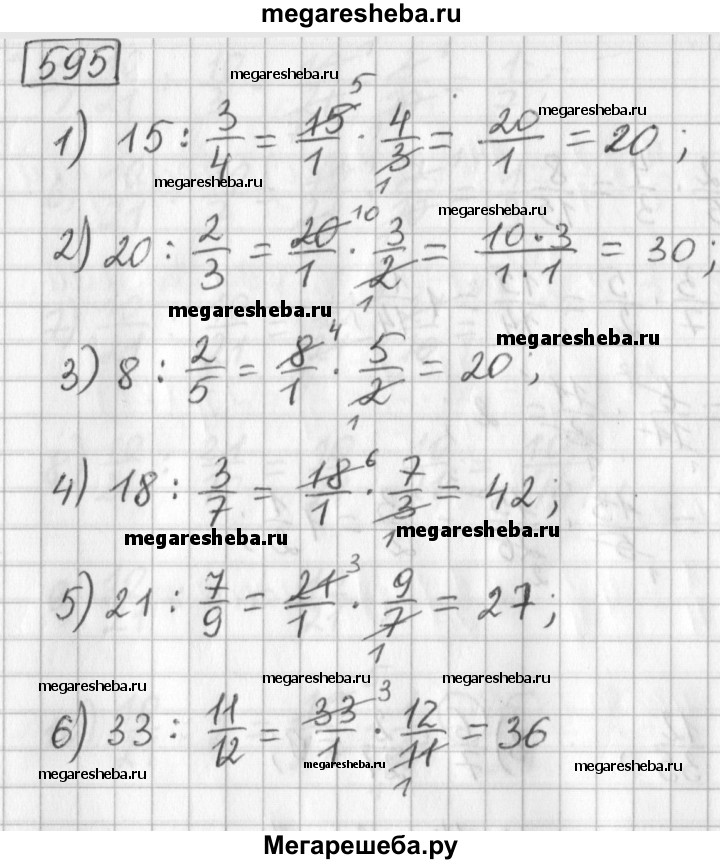 megaresheba.ru
595
megaresheba.ru
1) 15 : 3/4 = 15/1 5 · 4/3 1 = 20/1 = 20 ;
megaresheba.ru
megaresheba.ru
megaresheba.ru
2) 20 : 2/3 = 20/1 10 · 3/2 1 = 10·3/1·1 = 30 ;
megaresheba.ru
megaresheba.ru
3) 8 : 2/5 = 8/1 4 · 5/2 1 = 20 ;
4) 18 : 3/7 = 18/1 6 · 7/3 1 = 42 ;
megaresheba.ru
megaresheba.ru
5) 21 : 7/9 = 21/1 3 · 9/7 1 = 27 ;
megaresheba.ru
megaresheba.ru
megaresheba.ru
6) 33 : 11/12 = 33/1 3 · 12/11 1 = 36
megaresheba.ru
megaresheba.ru
megaresheba.ru
Мегарешеба.ру